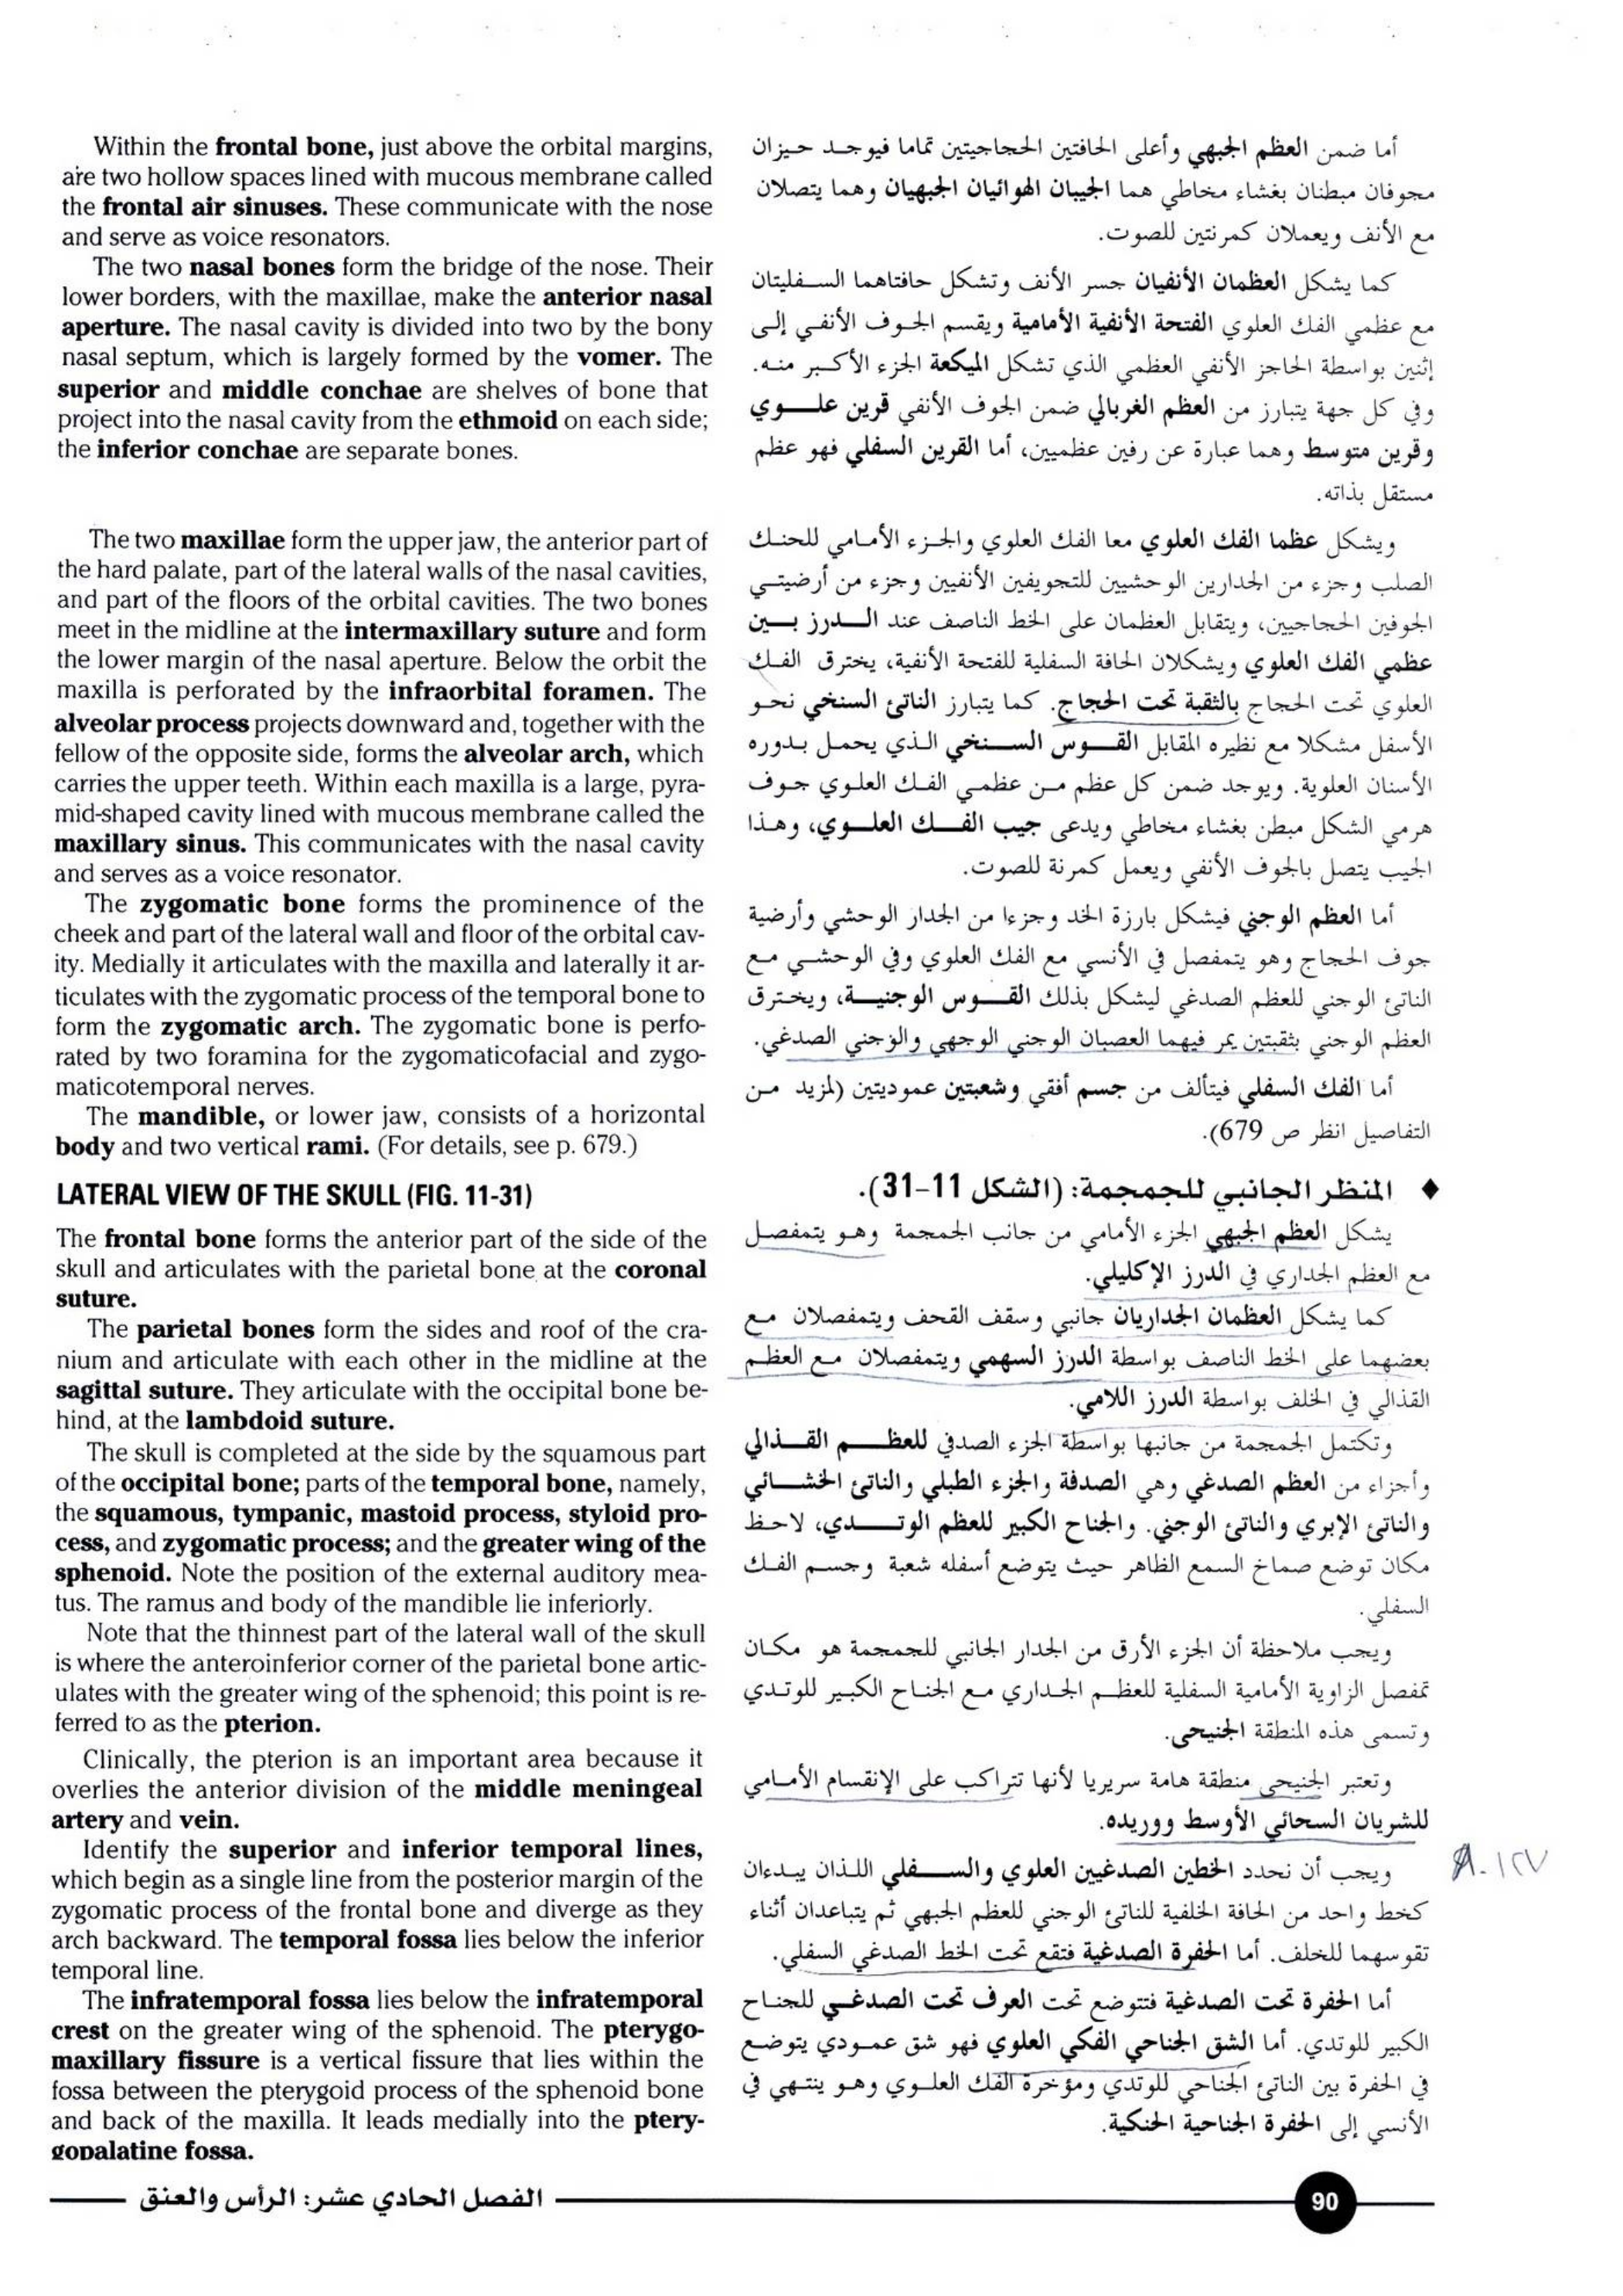 Within the frontal bone, just above the orbital margins,
are two hollow spaces lined with mucous membrane called
the frontal air sinuses. These communicate with the nose
and serve as voice resonators.
The two nasal bones form the bridge of the nose. Their
lower borders, with the maxillae, make the anterior nasal
aperture. The nasal cavity is divided into two by the bony
nasal septum, which is largely formed by the vomer. The
superior and middle conchae are shelves of bone that
project into the nasal cavity from the ethmoid on each side;
the inferior conchae are separate bones.
The two maxillae form the upper jaw, the anterior part of
the hard palate, part of the lateral walls of the nasal cavities,
and part of the floors of the orbital cavities. The two bones
meet in the midline at the intermaxillary suture and form
the lower margin of the nasal aperture. Below the orbit the
maxilla is perforated by the infraorbital foramen. The
alveolar process projects downward and, together with the
fellow of the opposite side, forms the alveolar arch, which
carries the upper teeth. Within each maxilla is a large, pyra-
mid-shaped cavity lined with mucous membrane called the
maxillary sinus. This communicates with the nasal cavity
and serves as a voice resonator.
The zygomatic bone forms the prominence of the
cheek and part of the lateral wall and floor of the orbital cav-
ity. Medially it articulates with the maxilla and laterally it ar-
ticulates with the zygomatic process of the temporal bone to
form the zygomatic arch. The zygomatic bone is perfo-
rated by two foramina for the zygomaticofacial and zygo-
maticotemporal nerves.
The mandible, or lower jaw, consists of a horizontal
body and two vertical rami. (For details, see p. 679.)
LATERAL VIEW OF THE SKULL (FIG. 11-31)
The frontal bone forms the anterior part of the side of the
skull and articulates with the parietal bone at the coronal
suture.
The parietal bones form the sides and roof of the cra-
nium and articulate with each other in the midline at the
sagittal suture. They articulate with the occipital bone be-
hind, at the lambdoid suture.
The skull is completed at the side by the squamous part
of the occipital bone; parts of the temporal bone, namely,
the squamous, tympanic, mastoid process, styloid pro-
cess, and zygomatic process; and the greater wing of the
sphenoid. Note the position of the external auditory mea-
tus. The ramus and body of the mandible lie inferiorly.
Note that the thinnest part of the lateral wall of the skull
is where the anteroinferior corner of the parietal bone artic-
ulates with the greater wing of the sphenoid; this point is re-
ferred to as the pterion.
Clinically, the pterion is an important area because it
overlies the anterior division of the middle meningeal
artery and vein.
Identify the superior and inferior temporal lines,
which begin as a single line from the posterior margin of the
zygomatic process of the frontal bone and diverge as they
arch backward. The temporal fossa lies below the inferior
temporal line.
The infratemporal fossa lies below the infratemporal
crest on the greater wing of the sphenoid. The pterygo-
maxillary fissure is a vertical fissure that lies within the
fossa between the pterygoid process of the sphenoid bone
and back of the maxilla. It leads medially into the ptery-
gopalatine fossa.
أما ضمن العظم الجبهي وأعلى الحافتين الحجاجيتين تماما فيوجد حيزان
مجوفان مبطنان بغشاء مخاطي هما الجيبان الهوائيان الجبهيان وهما يتصلان
مع الأنف ويعملان كمرنتين للصوت.
كما يشكل العظمان الأنفيان جسر الأنف وتشكل حافتاهما السفليتان
مع عظمي الفك العلوي الفتحة الأنفية الأمامية ويقسم الجوف الأنفي إلى
إثنين بواسطة الحاجز الأنفي العظمي الذي تشكل الميكعة الجزء الأكبر منه.
وفي كل جهة يتبارز من العظم الغربالي ضمن الجوف الأنفي قرين علوي
وقرين متوسط وهما عبارة عن رفين عظميين، أما القرين السفلي فهو عظم
مستقل بذاته.
ويشكل عظما الفك العلوي معا الفك العلوي والجزء الأمامي للحنك
الصلب وجزء من الجدارين الوحشيين للتجويفين الأنفيين وجزء من أرضيتي
الجوفين الحجاجيين، ويتقابل العظمان على الخط الناصف عند الدرز بين
عظمي الفك العلوي ويشكلان الحافة السفلية للفتحة الأنفية، يخترق الفك
العلوي تحت الحجاج بالثقبة تحت الحجاج. كما يتبارز الناتئ السنخي نحو
الأسفل مشكلا مع نظيره المقابل القوس السنخي الذي يحمل بدوره
الأسنان العلوية. ويوجد ضمن كل عظم من عظمي الفك العلوي جوف
هرمي الشكل مبطن بغشاء مخاطي ويدعى جيب الفك العلوي، وهذا
الجيب يتصل بالجوف الأنفي ويعمل كمرنة للصوت.
أما العظم الوجني فيشكل بارزة الخد وجزءا من الجدار الوحشي وأرضية
جوف الحجاج وهو يتمفصل في الأنسي مع الفك العلوي وفي الوحشي مع
الناتئ الوجني للعظم الصدغي ليشكل بذلك القوس الوجنية، ويخترق
العظم الوجني بثقبتين يمر فيهما العصبان الوجني الوجهي والوجني الصدغي.
أما الفك السفلي فيتألف من جسم أفقي وشعبتين عموديتين (لمزيد من
التفاصيل انظر ص 679).
♦ المنظر الجانبي للجمجمة: (الشكل 11-31).
يشكل العظم الجبهي الجزء الأمامي من جانب الجمجمة وهو يتمفصل
مع العظم الجداري في الدرز الإكليلي.
كما يشكل العظمان الجداريان جانبي وسقف القحف ويتمفصلان مع
بعضهما على الخط الناصف بواسطة الدرز السهمي ويتمفصلان مع العظم
القذالي في الخلف بواسطة الدرز اللامي.
وتكتمل الجمجمة من جانبها بواسطة الجزء الصدفي للعظم القذالي
وأجزاء من العظم الصدغي وهي الصدفة والجزء الطبلي والناتئ الخشائي
والناتئ الإبري والناتئ الوجني. والجناح الكبير للعظم الوتدي، لاحظ
مكان توضع صماخ السمع الظاهر حيث يتوضع أسفله شعبة وجسم الفك
السفلي.
ويجب ملاحظة أن الجزء الأرق من الجدار الجانبي للجمجمة هو مكان
تمفصل الزاوية الأمامية السفلية للعظم الجداري مع الجناح الكبير للوتدي
وتسمى هذه المنطقة الجنيحى.
وتعتبر الجنيحى منطقة هامة سريريا لأنها تتراكب على الإنقسام الأمامي
للشريان السحائي الأوسط ووريده.
ويجب أن نحدد الخطين الصدغيين العلوي والسفلي اللذان يبدءان
كخط واحد من الحافة الخلفية للناتئ الوجني للعظم الجبهي ثم يتباعدان أثناء
تقوسهما للخلف. أما الحفرة الصدغية فتقع تحت الخط الصدغي السفلي.
أما الحفرة تحت الصدغية فتتوضع تحت العرف تحت الصدغي للجناح
الكبير للوتدي. أما الشق الجناحي الفكي العلوي فهو شق عمودي يتوضع
في الحفرة بين الناتئ الجناحي للوتدي ومؤخرة الفك العلوي وهو ينتهي في
الأنسي إلى الحفرة الجناحية الحنكية.
الفصل الحادي عشر: الرأس والعنق
90